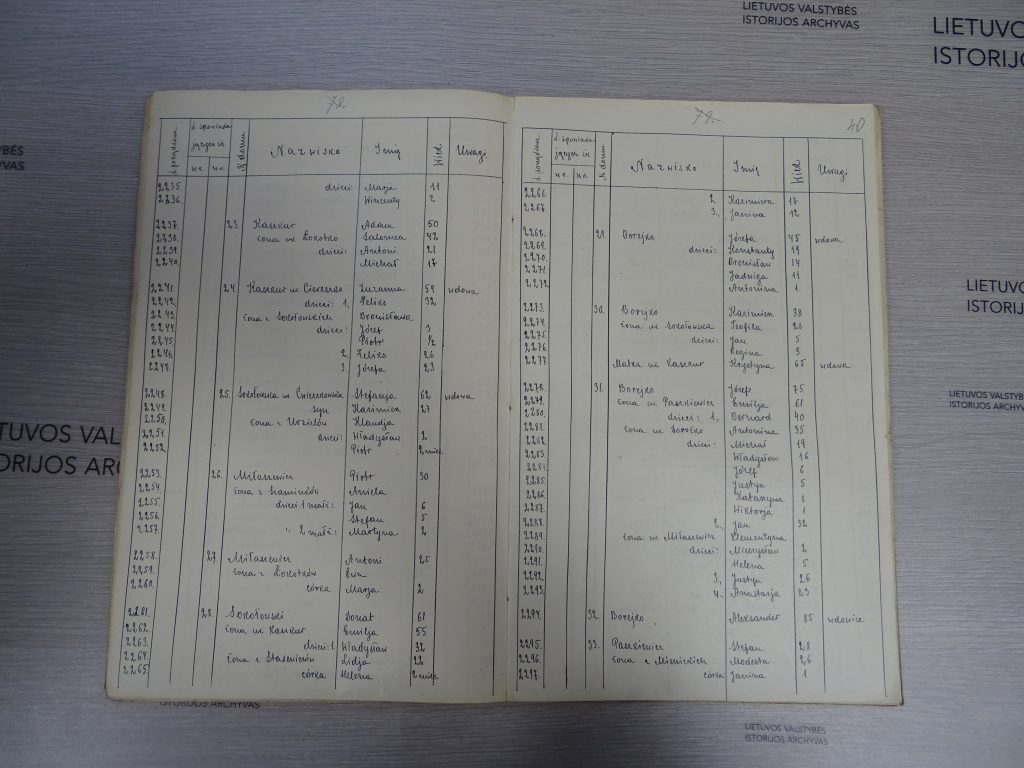 LIETUVOS VALSTYBĖS
ISTORIJOS ARCHYVAS
LIETUVOS
ISTORIJOS
78.
d. spowiada
jących się
№ domu
Nazwisko
Imię
Wiek
Uwagi
2235. dzieci: Marja 11
2236. Wincenty 2
2237. 23. Kaszkur Adam 50
2238. żona ur. Łokotko Salomea 42
2239. dzieci: Antoni 21
2240. Michał 17
2241. 24. Kaszkur ur. Zuzanna 54 wdowa
2242. dzieci: 1. Feliks 32
2243. żona z Sokołowskich Bronisława
2244. dzieci: Józef 3
2245. Piotr ½
2246. 2. Feliks 26
2247. 3. Józefa 23
2248. 25. Sokołowska ur. Stefanja 62 wdowa
2249. syn Kazimierz 27
2250. żona z Klaudja
2251. dzieci: Władysław 2
2252. Piotr 2 mies.
2253. 26. Miłaszewicz Piotr 30
2254. żona z Aniela
2255. dzieci 1 małż: Jan 6
2256. Stefan 5
2257. " 2 małż: Martyna 2
2258. 27. Miłaszewicz Antoni 25
2259. żona z Łokotków Ewa
2260. córka Marja 2
2261. 28. Sokołowski Donat 61
2262. żona ur. Kaszkur Emilja 55
2263. dzieci: 1 Władysław 32
2264. żona z Lidja 22
2265. córka Helena 2 mies.
79.
40
d. spowiada
jących się
№ domu
Nazwisko
Imię
Wiek
Uwagi
2266. 2. Kazimiera 17
2267. 3. Janina 12
2268. 29. Borejko Józefa 45 wdowa
2269. dzieci: Konstanty 19
2270. Bronisław 14
2271. Jadwiga 11
2272. Antonina 1
2273. 30. Borejko Kazimierz 38
2274. żona ur. Sokołowska Teofila 28
2275. dzieci: Jan 5
2276. Regina 3
2277. Matka ur. Kaszkur Krystyna 65 wdowa
2278. 31. Borejko Józef 75
2279. żona ur. Paszkiewicz Emilja 61
2280. dzieci: 1. Bernard 40
2281. żona ur. Antonina 35
2282. dzieci: Michał 19
2283. Władysław 16
2284. Józef 6
2285. Justyn 5
2286. Katarzyna 8
2287. Wiktorja 1
2288. 2. Jan 32
2289. żona ur. Miłaszewicz Klementyna
2290. dzieci: Mieczysław 2
2291. Helena 5
2292. 3. Justyn 26
2293. 4. Anastazja 23
2294. 32. Borejko Aleksander 85 wdowiec
2295. 33. Paszkiewicz Stefan 28
2296. żona z Modesta 26
2297. córka Janina 1